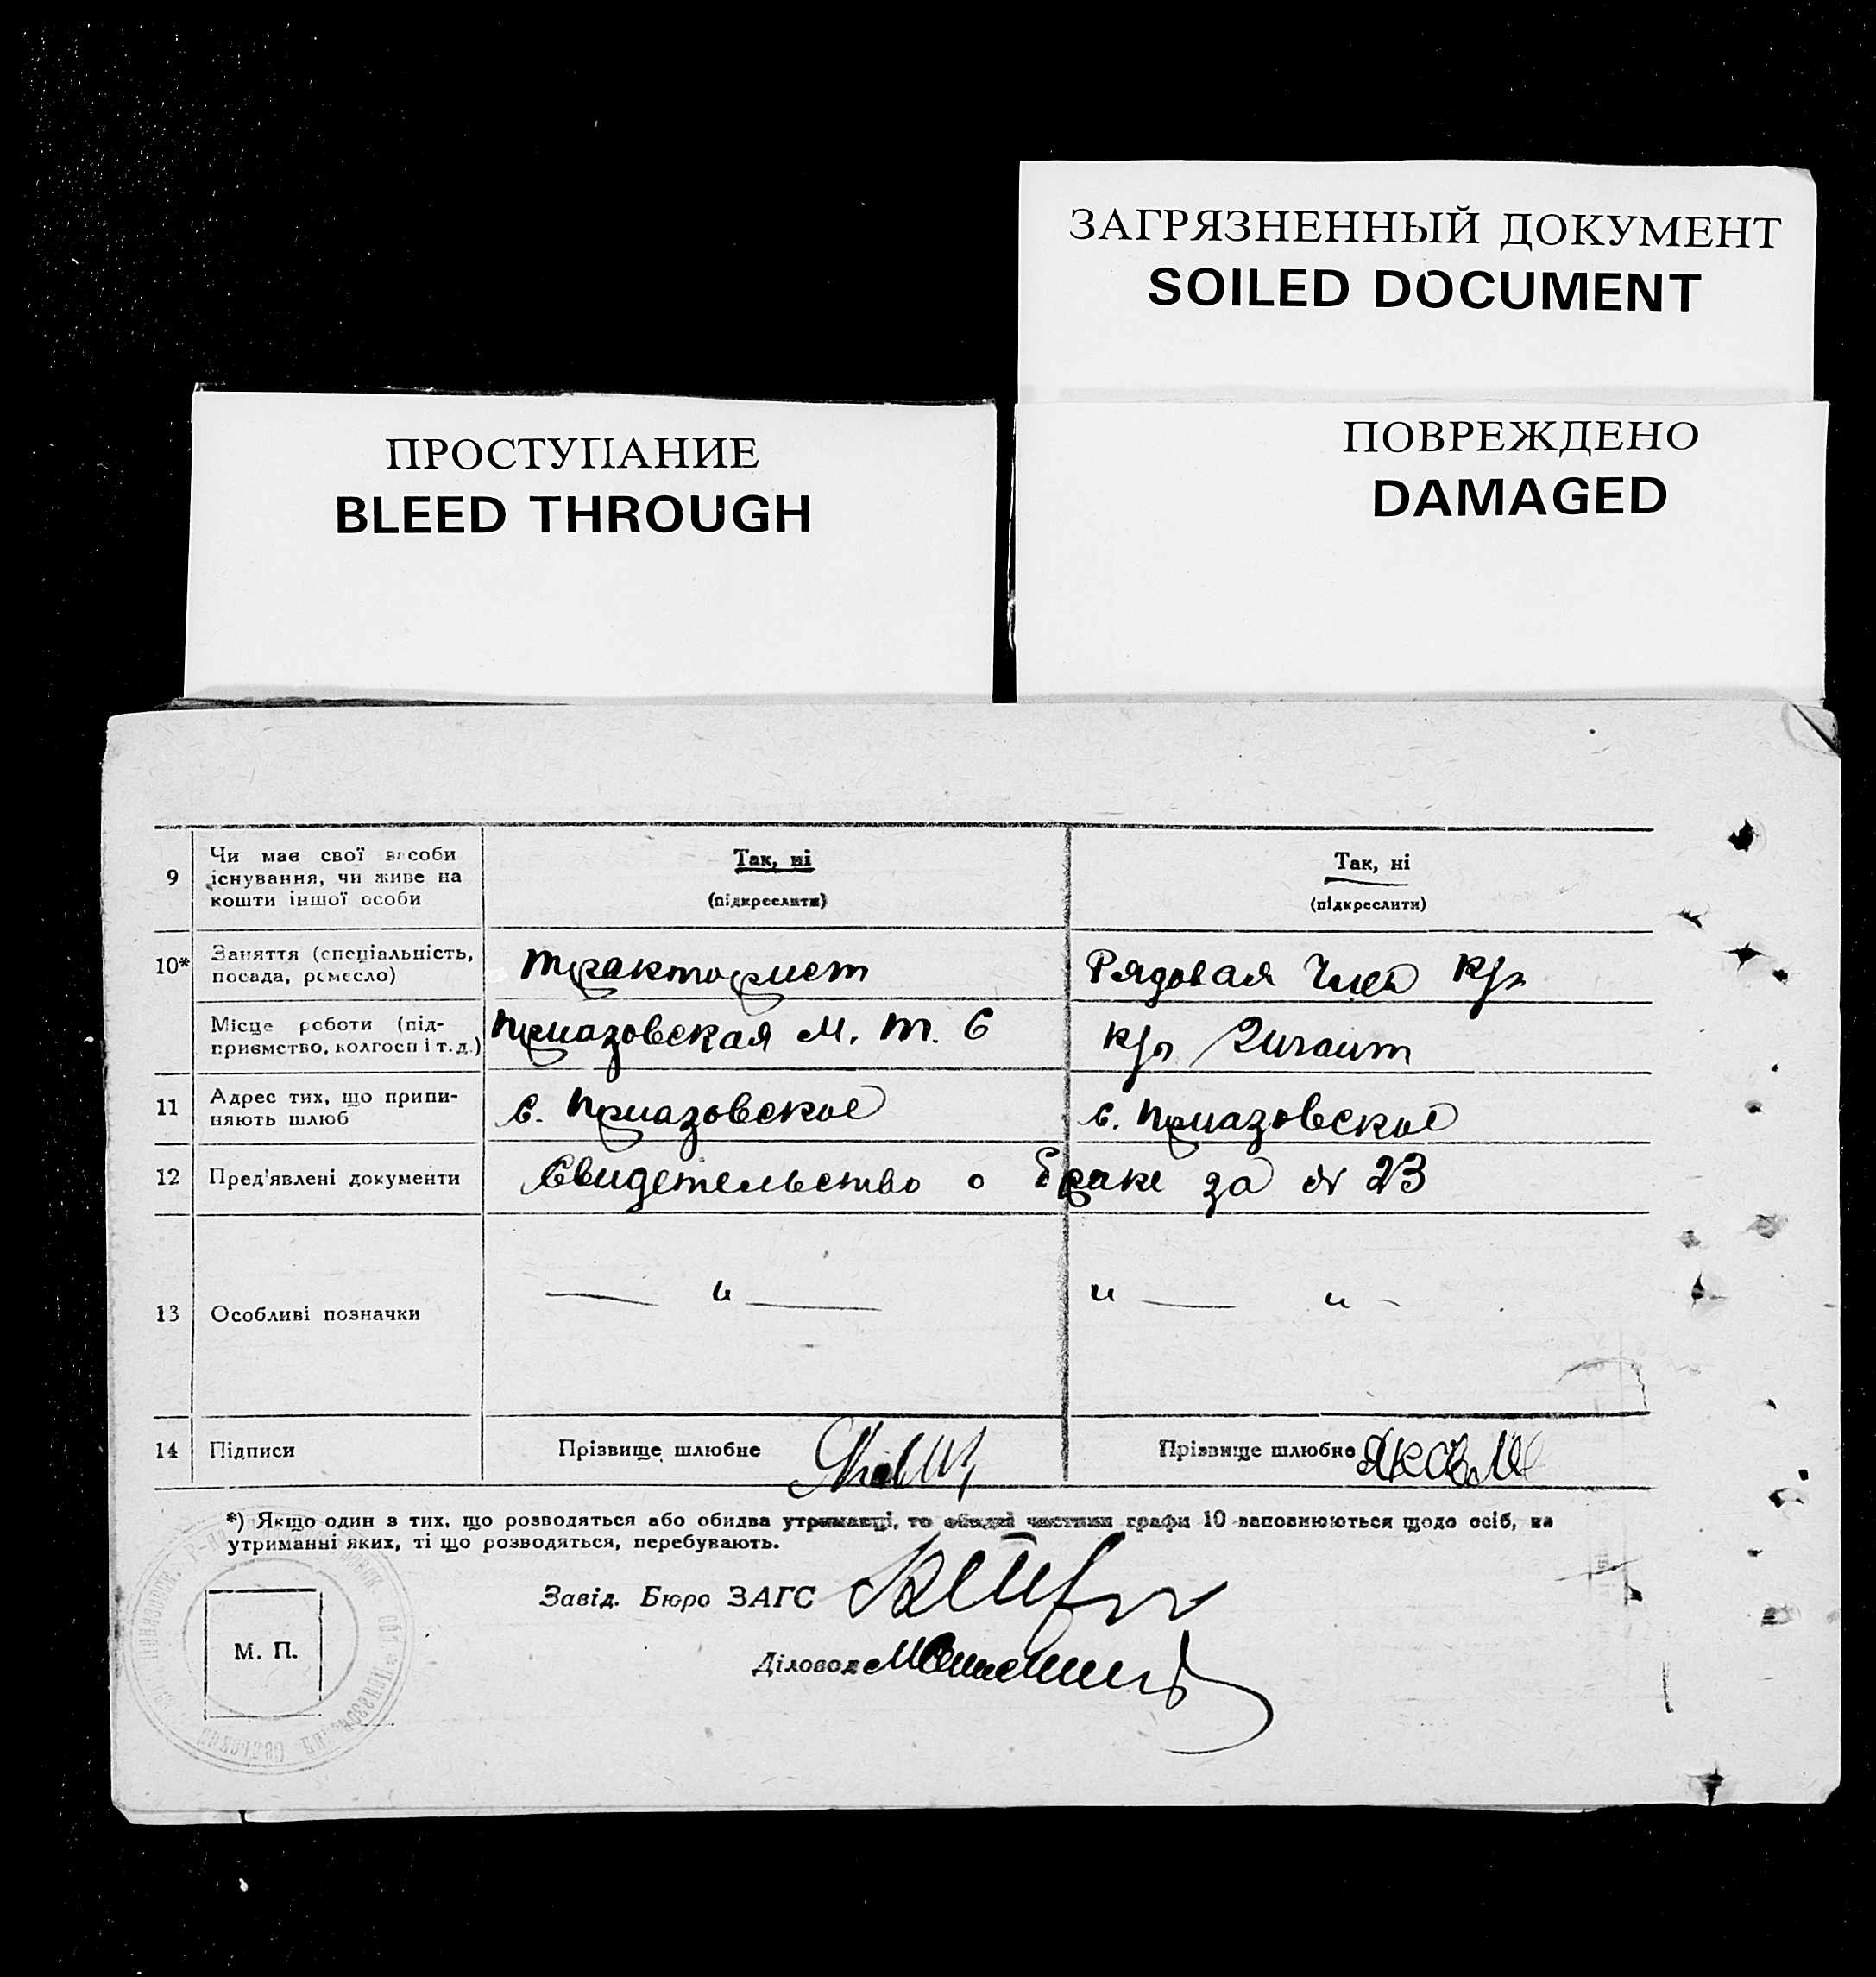 ЗАГРЯЗНЕННЫЙ ДОКУМЕНТ
SOILED DOCUMENT
ПРОСТУПАНИЕ
BLEED THROUGH
ПОВРЕЖДЕНО
DAMAGED
9 Чи має свої засоби існування, чи живе на кошти іншої особи
Так, ні
(підкреслити)
Так, ні
(підкреслити)
10* Заняття (спеціальність, посада, ремесло)
тракторист
Рядовая член к/г
Місце роботи (підприємство, колгосп і т. д.)
Приазовская М. Т. С
11 Адрес тих, що припиняють шлюб
с. Приазовское
с. Приазовское
12 Пред'явлені документи
Свидетельство о браке за № 23
13 Особливі позначки
— " —
" — " -
14 Підписи
Прізвище шлюбне
Прізвище шлюбне
*) Якщо один з тих, що розводяться або обидва утриманці, то обидві частини графи 10 заповнюються щодо осіб, на
утриманні яких, ті що розводяться, перебувають.
Завід. Бюро ЗАГС
Діловод
М. П.